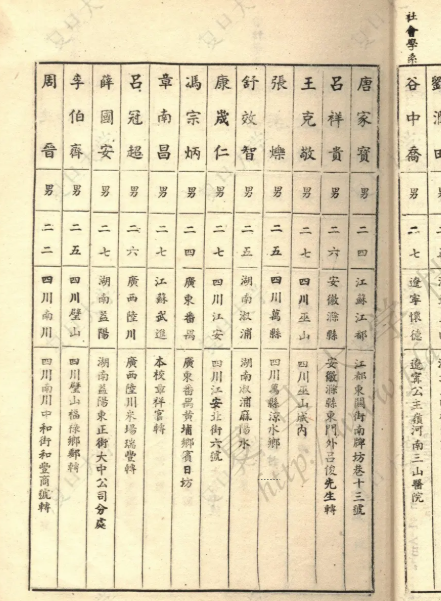 社會學系
谷中喬 男 二七 遼寧懷德 遼寧公主嶺河南三山醫院
唐家寶 男 二四 江蘇江都 江都東關街南牌坊巷十三號
呂祥貴 男 二六 安徽滁縣 安徽滁縣東門外呂俊先生轉
王克敬 男 二七 四川巫山 四川巫山城內
張爍 男 二五 四川萬縣 四川萬縣涼水鄉
舒效智 男 二五 湖南溆浦 湖南溆浦麻陽水
康歲仁 男 二七 四川江安 四川江安北街六號
馮宗炳 男 二四 廣東番禺 廣東番禺黃埔鄉賓日坊
章南昌 男 二七 江蘇武進 本校章祥官轉
呂冠超 男 二六 廣西陸川 廣西陸川米場瑞豐轉
薛國安 男 二七 湖南益陽 湖南益陽東正街大中公司分處
李伯齊 男 二五 四川璧山 四川璧山福祿鄉郵轉
周晉 男 二二 四川南川 四川南川中和街和豐商號轉